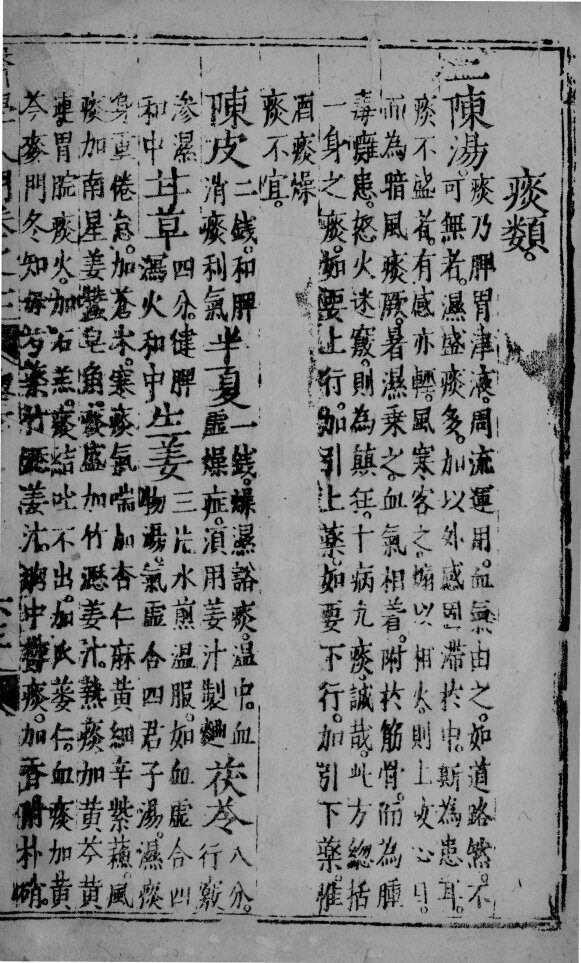 痰類。
二陳湯。痰乃脾胃津液。周流運用。血氣由之。如道路然。不
可無者。濕盛痰多。加以外感固滯於中。斯為患耳。
痰不盛者。有感亦輕。風寒客之。煽以相火。則上攻心目。
而為暗風痰厥。暑濕乘之。血氣相着。附於筋骨。而為腫
毒癱患。怒火迷竅。則為顛狂。十病九痰。誠哉。此方總括
一身之痰。如要上行。加引上藥。如要下行。加引下藥。惟
酒痰燥
痰不宜。
陳皮二錢。和脾消痰利氣半夏一錢。燥濕豁痰。溫中。血虛燥症。須用姜汁製麯茯苓八分。行竅
滲濕甘草四分。健脾瀉火和中生姜三片水煎溫服。如血虛合四
和中物湯。氣虛合四君子湯。濕痰
身重倦怠。加蒼朮。寒痰氣喘加杏仁麻黃細辛紫蘇。風
痰加南星姜蠶皂角。痰盛加竹瀝姜汁。熱痰加黃芩黃
連胃脘痰火。加石羔。痰結吐不出。加瓜蔞仁。血痰加黃
芩麥門冬知母芍藥竹瀝姜汁。胸中鬱痰。加香附朴硝。